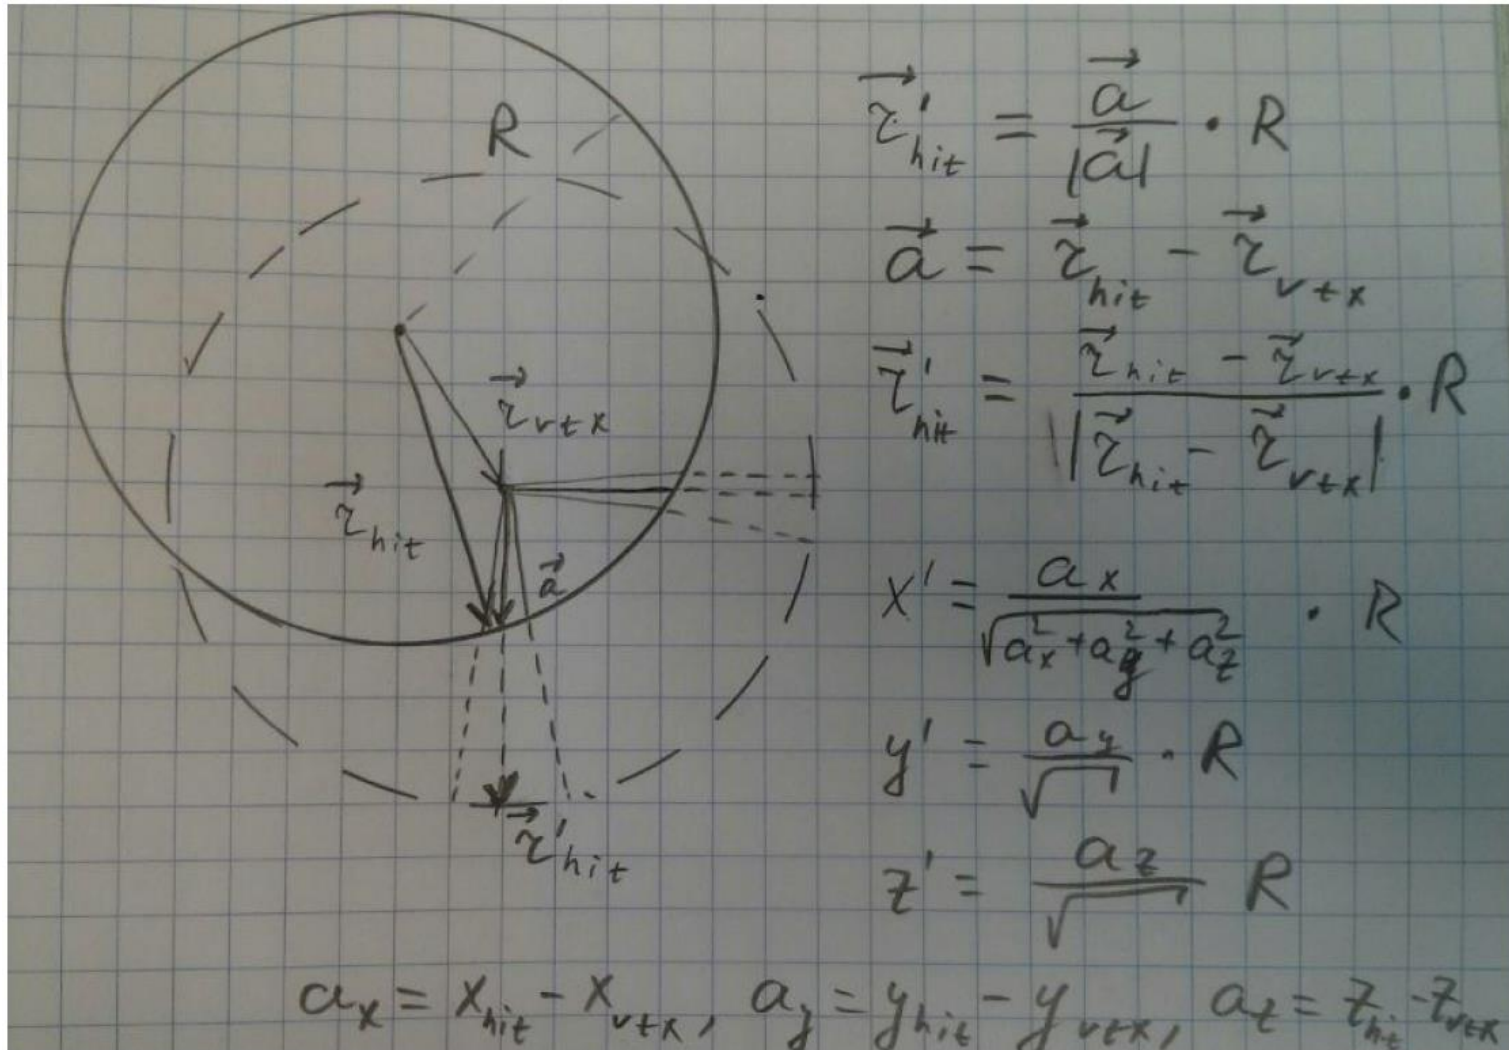 R
r⃗_vtx
r⃗_hit
a⃗
r⃗'_hit
r⃗'_hit = a⃗ / |a⃗| · R
a⃗ = r⃗_hit - r⃗_vtx
r⃗'_hit = (r⃗_hit - r⃗_vtx) / |r⃗_hit - r⃗_vtx| · R
x' = a_x / √(a_x² + a_y² + a_z²) · R
y' = a_y / √ · R
z' = a_z / √ R
a_x = x_hit - x_vtx, a_y = y_hit - y_vtx, a_z = z_hit - z_vtx